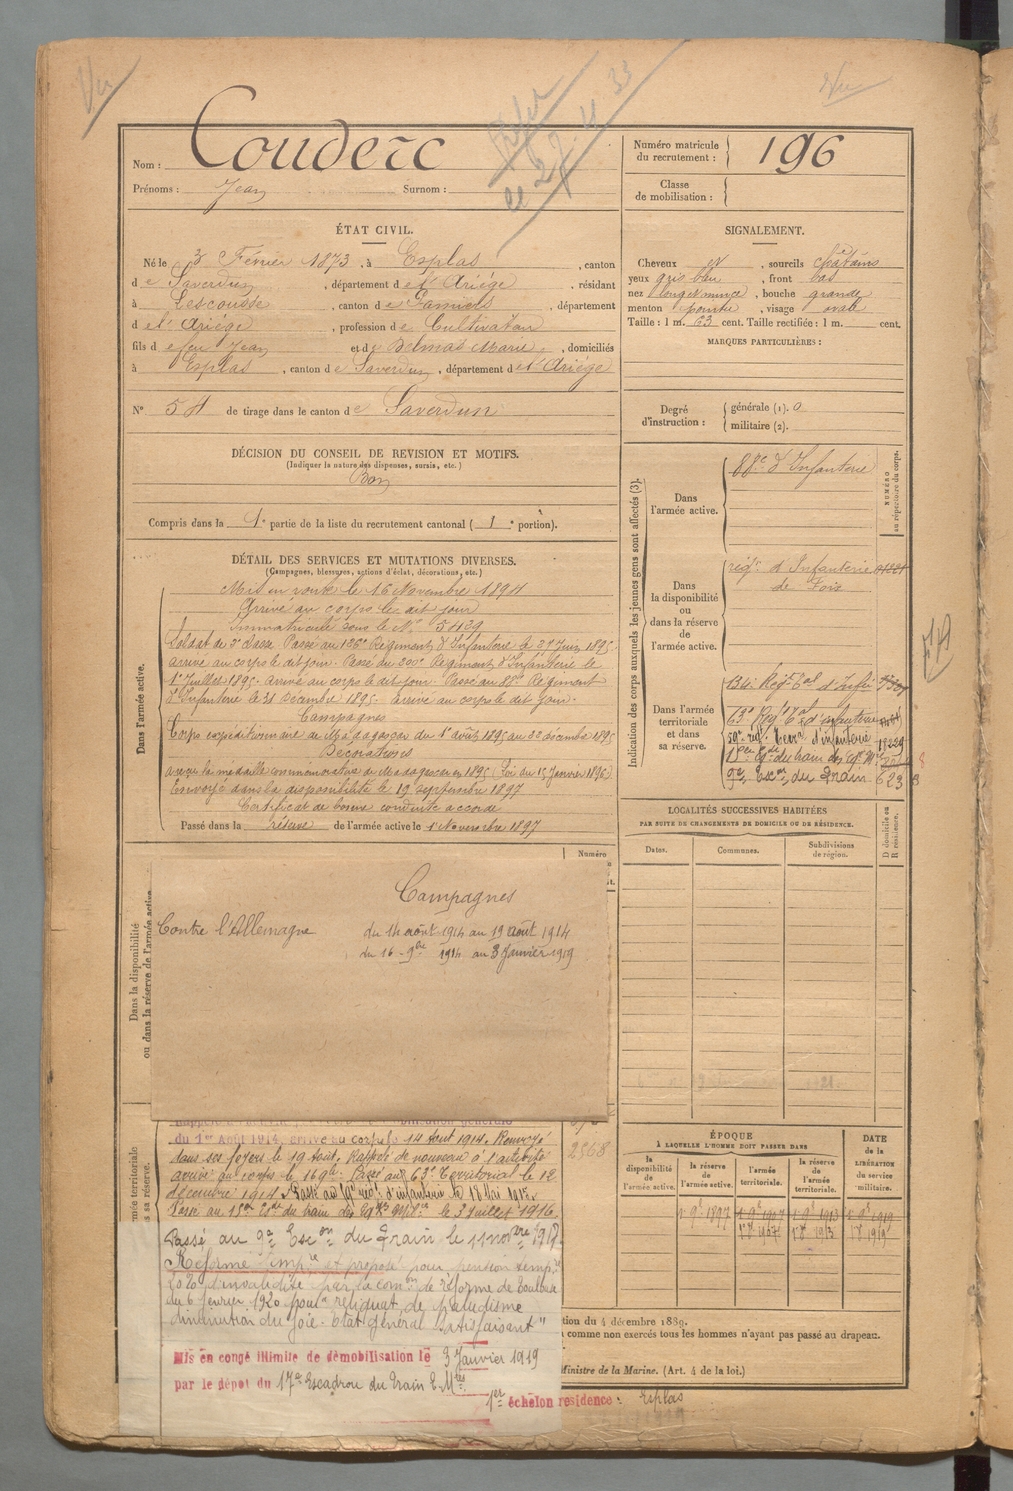 Vu
Vu
Nom : Couderc
Prénoms : Jean Surnom :
Numéro matricule du recrutement : 196
Classe de mobilisation :
ÉTAT CIVIL.
Né le 3 Février 1873, à Esplas, canton
de Saverdun, département de l'Ariége, résidant
à Lescousse, canton de Pamiers, département
de l'Ariége, profession de Cultivateur
fils de feu Jean et de Delmas Marie, domiciliés
à Esplas, canton de Saverdun, département de l'Ariége
N° 54 de tirage dans le canton de Saverdun
SIGNALEMENT.
Cheveux et, sourcils châtains
yeux gris bleu, front bas
nez long et mince, bouche grande
menton pointu, visage ovale
Taille : 1 m. 63 cent. Taille rectifiée : 1 m. cent.
MARQUES PARTICULIÈRES :
Degré d'instruction : générale (1). 0
militaire (2).
DÉCISION DU CONSEIL DE REVISION ET MOTIFS.
(Indiquer la nature des dispenses, sursis, etc.)
Bon
Compris dans la 1e partie de la liste du recrutement cantonal (1e portion).
DÉTAIL DES SERVICES ET MUTATIONS DIVERSES.
(Campagnes, blessures, actions d'éclat, décorations, etc.)
Dans l'armée active.
Mis en route le 16 Novembre 1894
Arrivé au corps le dit jour
Immatriculé sous le N° 5439
Soldat de 2e classe. Passé au 136e Régiment d'Infanterie le 27 Juin 1895
arrivé au corps le dit jour. Passé du 200e Régiment d'Infanterie le
1er Juillet 1895. arrivé au corps le dit jour. Passé au 88e Régiment
d'Infanterie le 31 décembre 1895. arrivé au corps le dit jour.
Campagnes
Corps expéditionnaire de Madagascar du 1er août 1895 au 22 décembre 1895
Décorations
a reçu la médaille commémorative de Madagascar 1895 (Loi du 15 Janvier 1896)
Envoyé dans la disponibilité le 19 septembre 1897
Certificat de bonne conduite accordé
Passé dans la réserve de l'armée active le 1er Novembre 1897
Indication des corps auxquels les jeunes gens sont affectés (3).
NUMÉRO au répertoire du corps.
Dans l'armée active.
88e d'Infanterie
Dans la disponibilité ou dans la réserve de l'armée active.
régt. d'Infanterie
de Foix
Dans l'armée territoriale et dans sa réserve.
134e Rég. Tal d'Infie
63e Régt Tal d'infanterie
59e régt. Terral d'infanterie 18229
9e Escon du Train 623
LOCALITÉS SUCCESSIVES HABITÉES
PAR SUITE DE CHANGEMENTS DE DOMICILE OU DE RÉSIDENCE.
Dates. Communes. Subdivisions de région.
D domicile ou R résidence.
Numéro
Dans la disponibilité
ou dans la réserve de l'armée active
Campagnes
Contre l'Allemagne du 14 août 1914 au 19 août 1914
du 16 - 9bre 1914 au 3 Janvier 1919
du 1er Août 1914, arrivé au corps le 14 Août 1914. Renvoyé
dans ses foyers le 19 Août. Rappelé de nouveau à l'activité
arrivé au corps le 16 9bre. Passé au 63e Territorial le 12
décembre 1914. Passé au 59e régt d'infanterie le 17 Mai 1915.
Passé au 18e Eon du train des Eqges Mlres le 3 Juillet 1916.
Passé au 9e Escon du Train le 11 novbre 1917.
Réformé temp.re et proposé pour pension temp.re
20% d'invalidité par la comon de réforme de Toulouse
du 6 février 1920 pour reliquat de paludisme
diminution du foie. Etat général satisfaisant"
Mis en congé illimité de démobilisation le 3 Janvier 1919
par le dépôt du 17e Escadron du Train E. Mres
1er échelon résidence : Esplas
2568
ÉPOQUE
À LAQUELLE L'HOMME DOIT PASSER DANS
la disponibilité de l'armée active.
la réserve de l'armée active.
l'armée territoriale.
la réserve de l'armée territoriale.
DATE de la LIBÉRATION du service militaire.
1er 9bre 1897 1er 9bre 1907 1er 9bre 1913 1er 9bre 1919
tion du 4 décembre 1889.
comme non exercés tous les hommes n'ayant pas passé au drapeau.
Ministre de la Marine. (Art. 4 de la loi.)